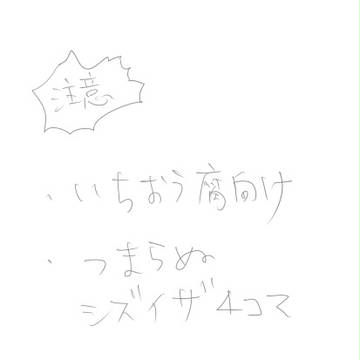 注意
・いちおう腐向け
・つまらぬ
シズイザ4コマ